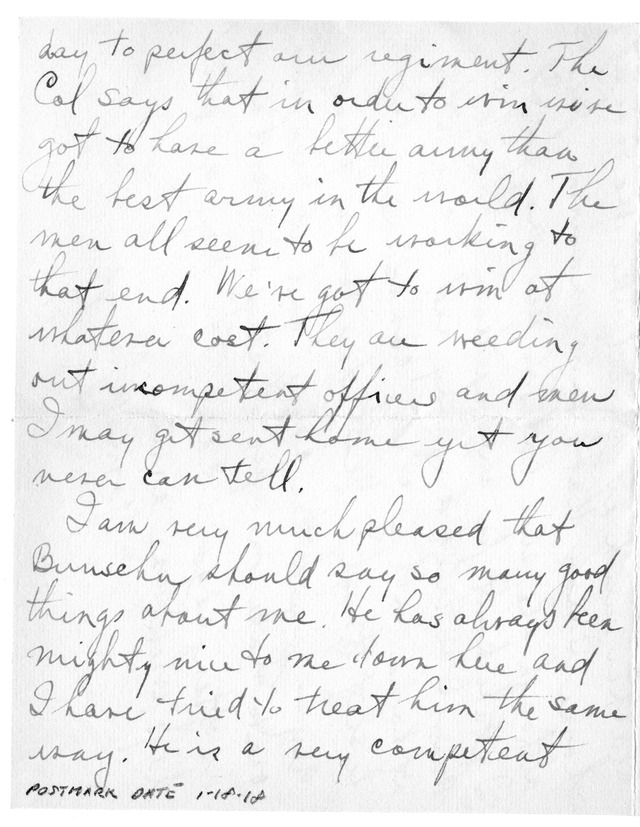 day to perfect our regiment. The
Col says that in order to win we've
got to have a better army than
the best army in the world. The
men all seem to be working to
that end. We've got to win at
whatever cost. They are weeding
out incompetent officers and men
I may get sent home yet you
never can tell.
I am very much pleased that
should say so many good
things about me. He has always been
mighty nice to me down here and
I have tried to treat him the same
way. He is a very competent
POSTMARK DATE 1-18-18